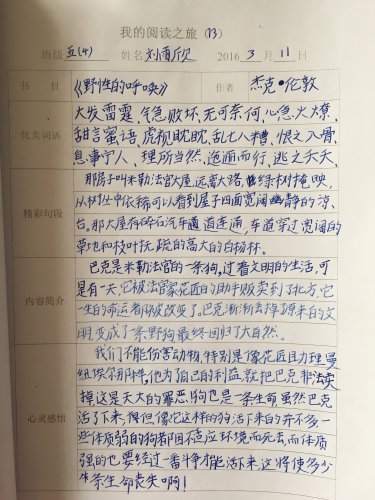 我的阅读之旅 (13)
班级 五(4) 姓名 刘雨欣 2016 3月11日
书 目 《野性的呼唤》 作者 杰克•伦敦
优美词语
大发雷霆、气急败坏、无可奈何、心急火燎、
甜言蜜语、虎视眈眈、乱七八糟、恨之入骨、
息事宁人、理所当然、迤逦而行、逃之夭夭、
精彩句段
那房子叫米勒法官大屋,远离大路,绿树掩映,
从树丛中依稀可以看到屋子四面宽阔幽静的凉
台。那大屋有碎石汽车道道连通,车道穿过宽阔的
草地和枝叶扶疏的高大的白杨林。
内容简介
巴克是米勒法官的一条狗,过着文明的生活,可
是有一天它被法官家花匠的助手贩卖到了北方,它
一生的命运者改变了。巴克渐渐去掉了原来的文
明,变成了条野狗最终回归了大自然。
心灵感悟
我们不能伤害动物,特别是像花匠助理曼
组埃尔那样,他为了自己的利益,就把巴克非法卖
掉这是天大的罪恶!狗也是一条生命虽然巴克
活了下来,但像它这样的狗活下来的并不多一
些体质弱的狗都因不适应环境而死去而体质
强的也要经过一番斗争才能活下来这将使多少
条生命丧失啊!